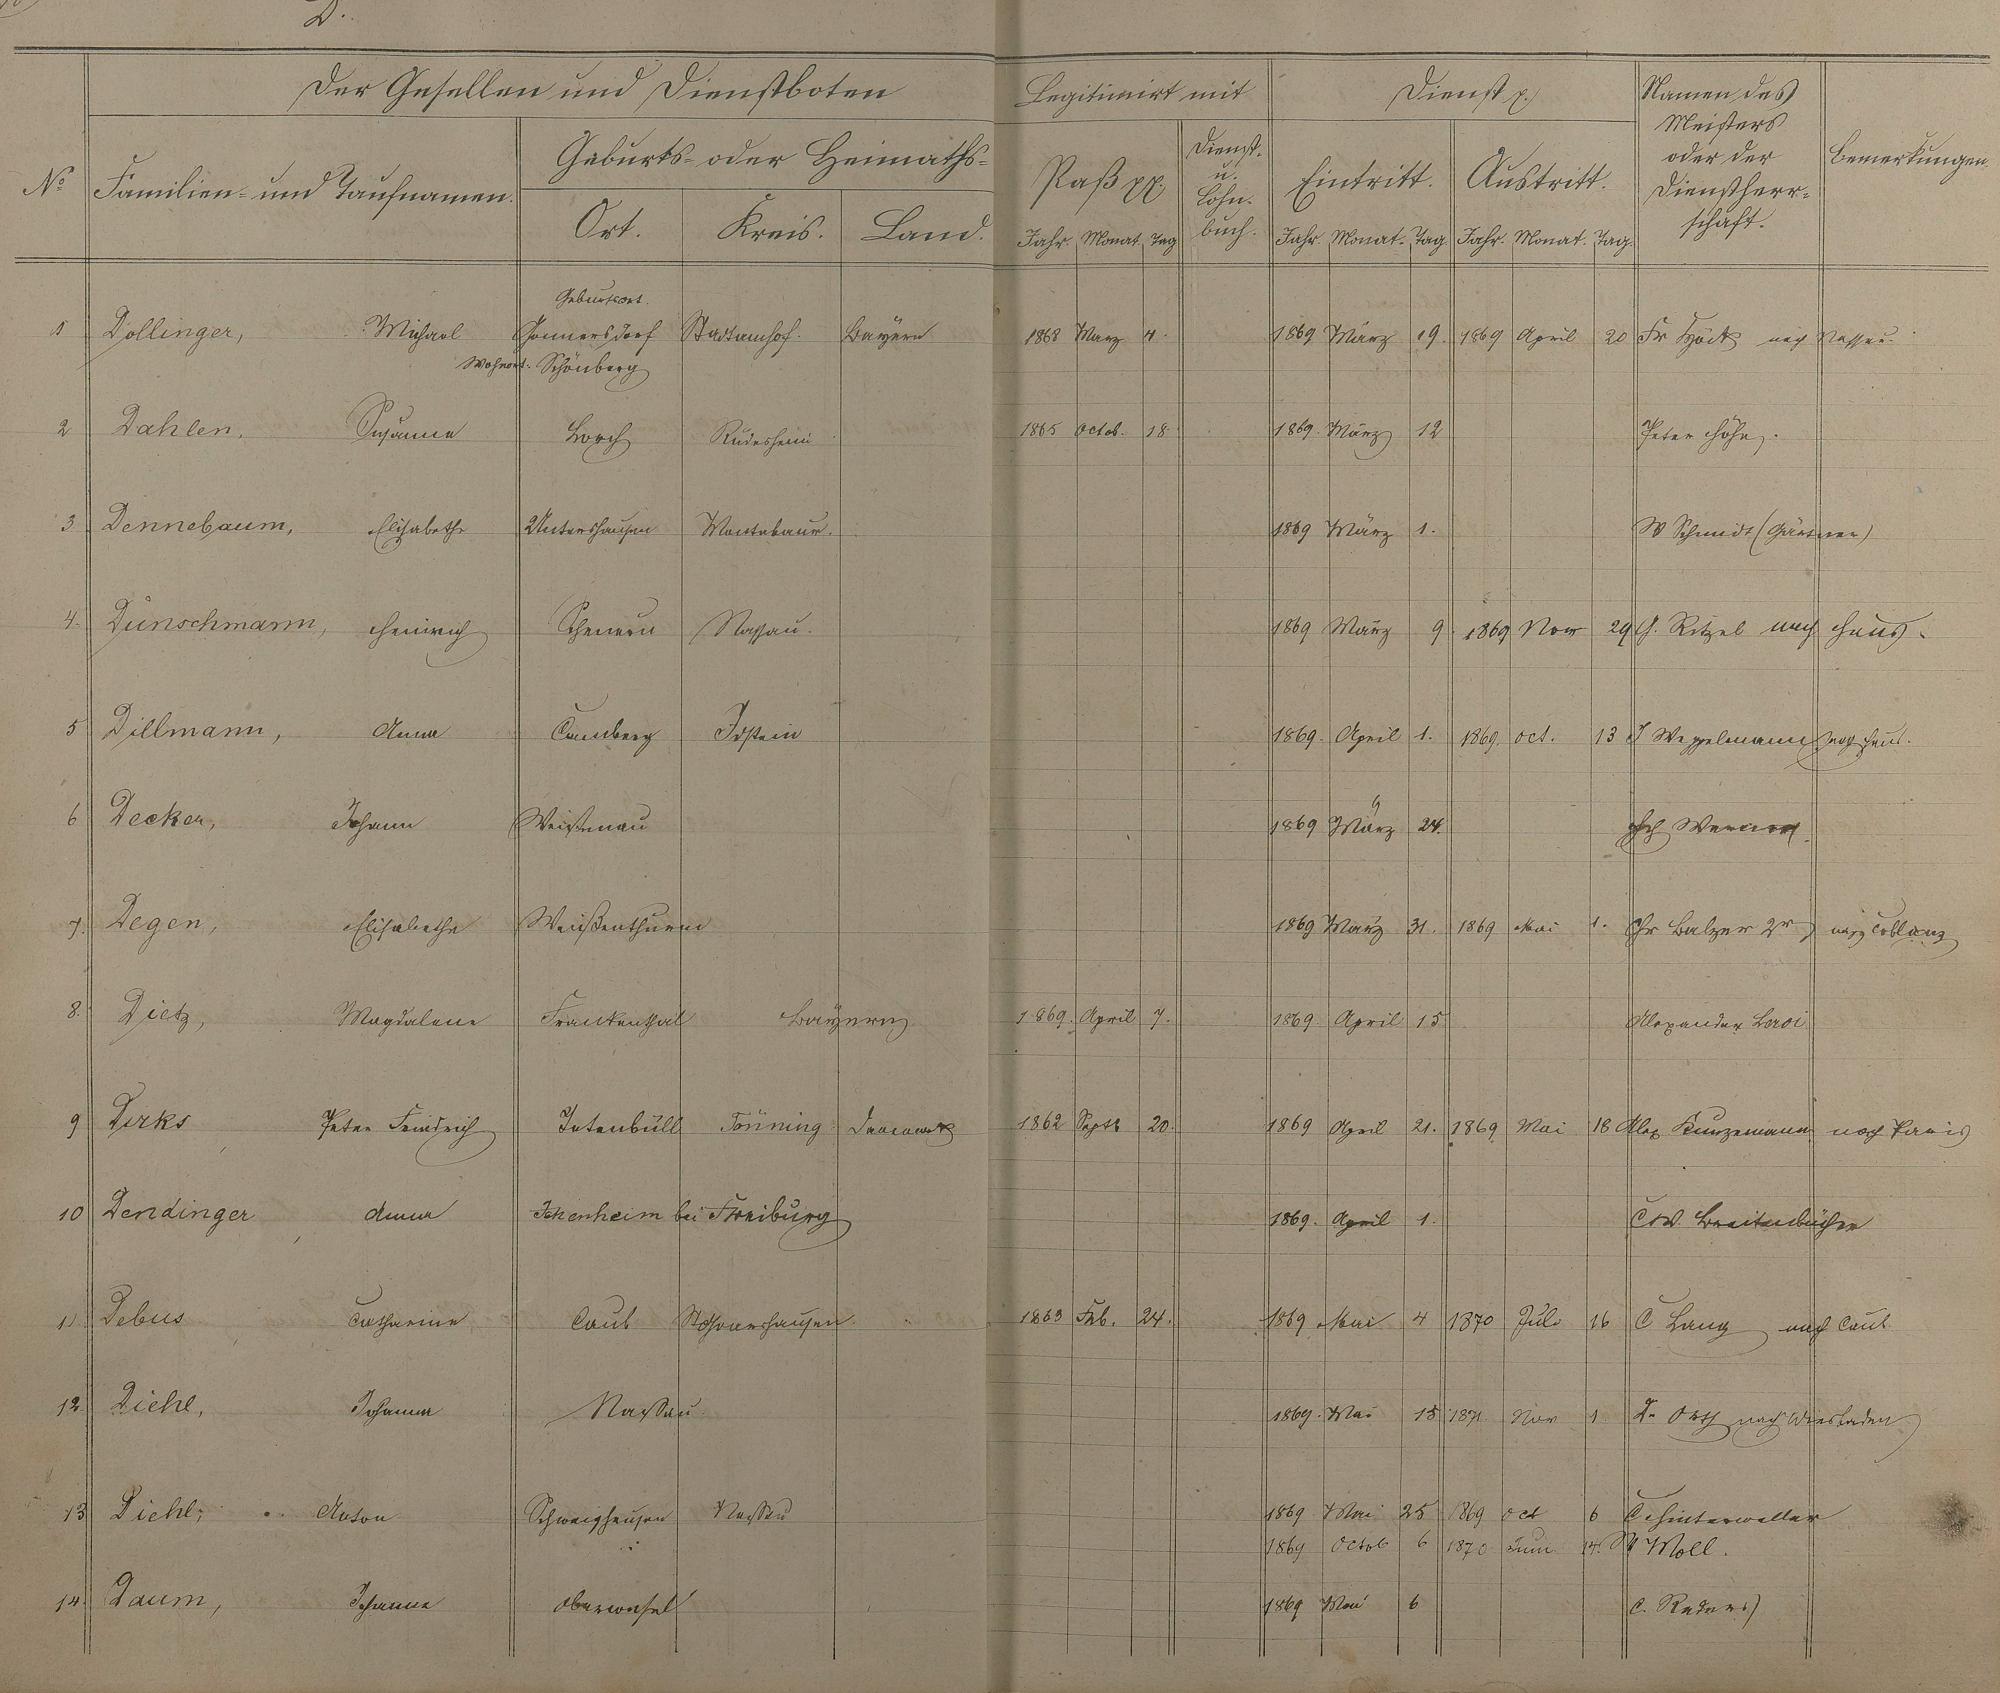 D.
Der Gesellen und Dienstboten
Legitimirt mit
Dienst p.
Namen des Meisters oder der Dienstherrschaft.
Bemerkungen.
No
Familien- und Taufnamen.
Geburts- oder Heimaths-
Ort. Kreis. Land.
Paß pp.
Jahr. Monat. Tag
Dienst- u. Lohn-buch.
Eintritt. Austritt.
Jahr. Monat. Tag. Jahr. Monat. Tag.
Geburtsort.
1 Dollinger, Michael Stadtamhof. Bayern 1868 März 4. 1869 März 19. 1869 April 20 Fr nach Nassau.
Wohnort. Schönberg
2 Dahlen, Susanna Lorch Rüdesheim 1865 Octob. 18 1869. März 12 Peter Höhn.
3 Dennebaum, Elisabethe Untershausen Montabaur. 1869 März 1. W Schmidt (Gärtner)
4. Dünschmann, Heinrich Scheuern Nassau. 1869 März 9. 1869 Nov 29 Ritzel nach Haus.
5 Dillmann, Anna Camberg Idstein 1869. April 1. 1869. Oct. 13 J Weppelmann nach Haus.
6 Decker, Johann Weissenau 1869 März 24. Werner
7. Degen, Elisabethe Weißenthurm 1869 März 31. 1869 Mai 1. Chr Balzer 2r nach Coblenz
8. Dietz, Magdalene Frankenthal Bayern 1869. April 7. 1869. April 15 Alexander Leroi
9 Dirks Peter Friedrich Tatenbüll Tönning Daenemark 1862 Septb 20. 1869 April 21. 1869 Mai 18 Alex Kunzemann nach Paris
10 Dendinger Anna Ichenheim bei Freiburg 1869. April 1. C W. Breitenbücher
11. Debus Catharine Caub St Goarshausen 1863 Feb. 24. 1869 Mai 4 1870 Juli 16 C Lang nach Caub
12. Diehl, Johanna Nassau. 1869. Mai 15 1871 Nov 1 Dr Orth nach Wiesbaden
13 Diehl, Anton Schweighausen Nassau 1869 Mai 25 1869 Oct 6 C Hinterwäller
1869 Octob 6 1870 Juni 14. Moll.
14. Daum, Johanna Oberwesel 1869 Mai 6 C.